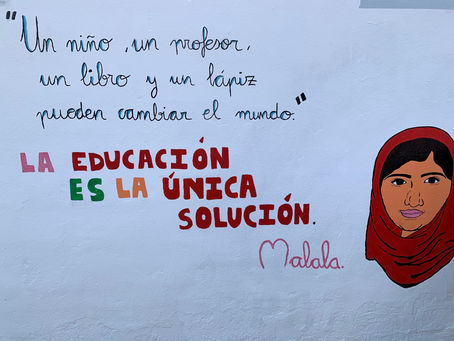 "Un niño, un profesor,
un libro y un lápiz
pueden cambiar el mundo."
LA EDUCACIÓN
ES LA ÚNICA
SOLUCIÓN.
Malala.